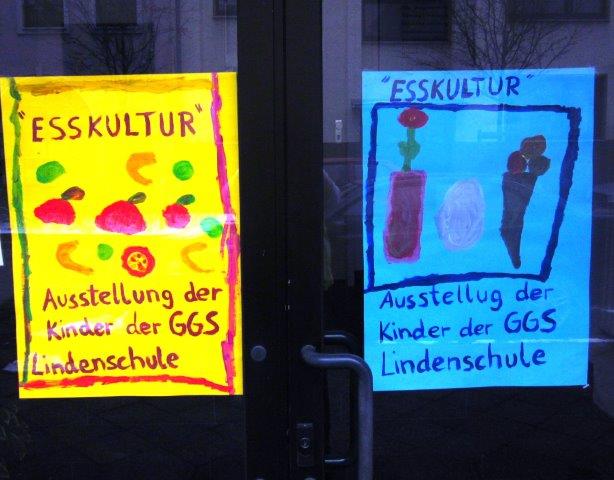 "ESSKULTUR"
Ausstellung der
Kinder der GGS
Lindenschule
"ESSKULTUR"
Ausstellug der
Kinder der GGS
Lindenschule